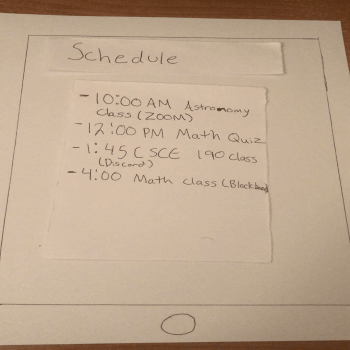 Schedule
- 10:00 AM Astronomy
class (ZOOM)
- 12:00 PM Math Quiz
- 1:45 CSCE 190 class
(Discord)
- 4:00 Math class (Blackboard